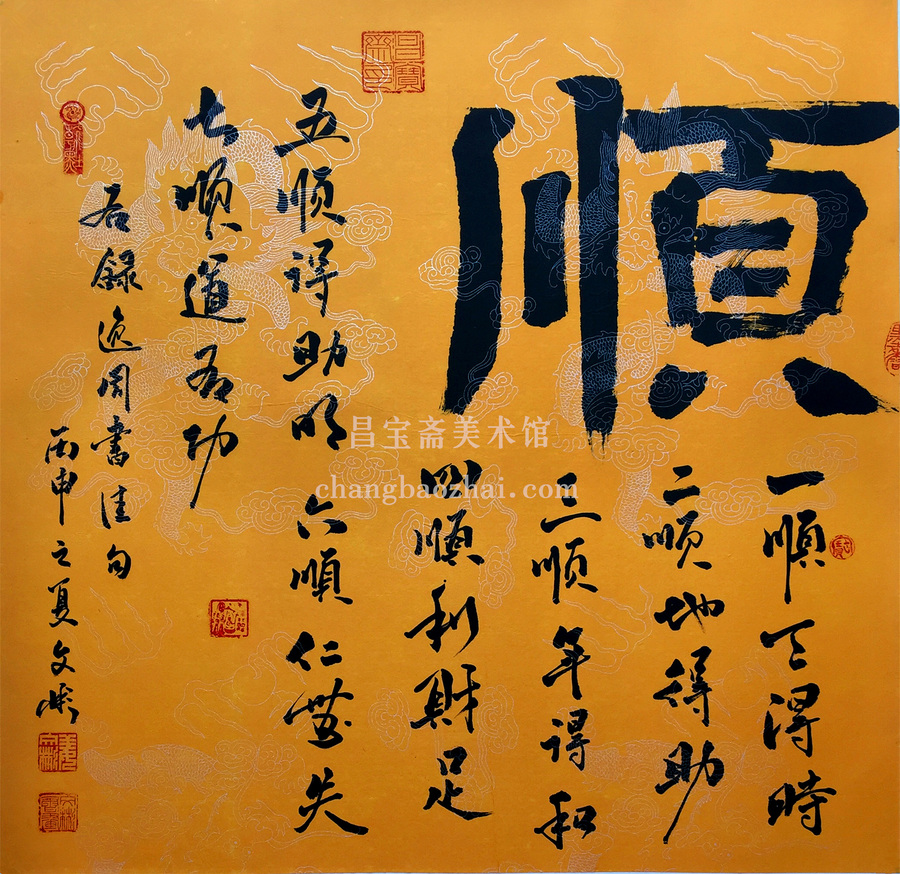 順
一順天得時
二順地得助
三順年得和
四順利財足
五順得助明 六順仁無失
七順道有功
右錄逸周書佳句
丙申之夏文
昌寶齋印
昌宝斋美术馆
changbaozhai.com